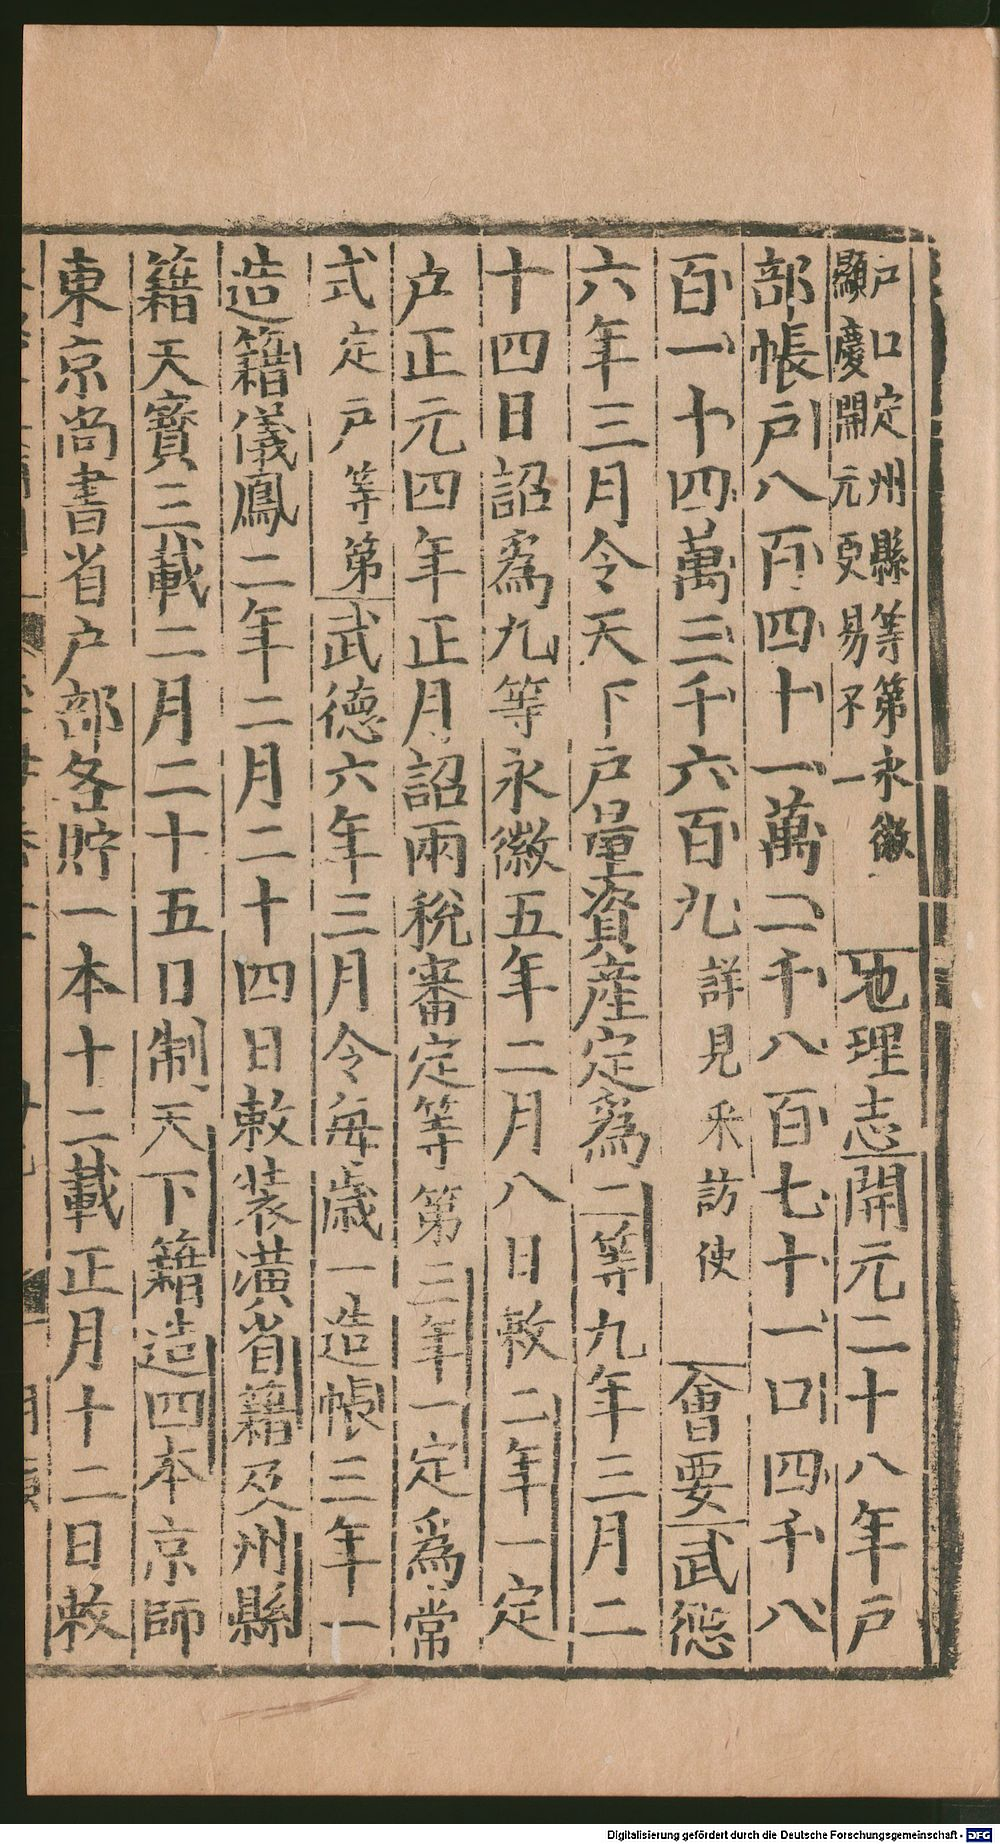 戸口定州縣等第永徽
顯慶開元更易不一
地理志開元二十八年戸
部帳戸八百四十一萬二千八百七十一口四千八
百一十四萬三千六百九
詳見釆訪使
會要武德
六年三月令天下戸量資産定爲三等九年三月二
十四日詔爲九等永徽五年二月八日敕二年一定
戸正元四年正月詔兩税審定等第三年一定爲常
式
定戸等第
武德六年三月令每歳一造帳三年一
造籍儀鳳二年二月二十四日敕裝潢省籍及州縣
籍天寳三載二月二十五日制天下籍造四本京師
東京尚書省戸部各貯一本十二載正月十二日敕
Digitalisierung gefördert durch die Deutsche Forschungsgemeinschaft - DFG